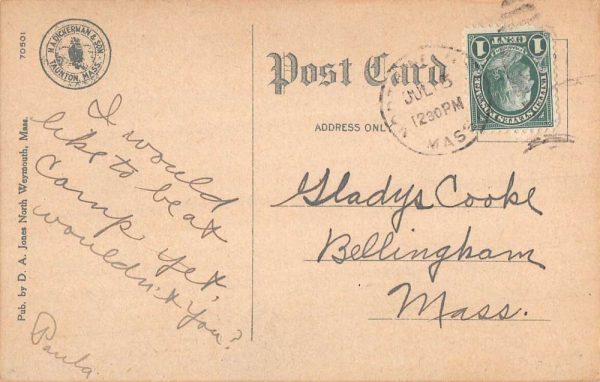 70501
H.A. DICKERMAN & SON
TAUNTON, MASS.
Pub. by D. A. Jones North Weymouth, Mass.
I would
like to be at
camp yet,
wouldn't you?
Paula.
Post Card
ADDRESS ONLY
JUL 5
12 30 PM
MASS
1 CENT 1
UNITED STATES POSTAGE
Gladys Cooke
Bellingham
Mass.